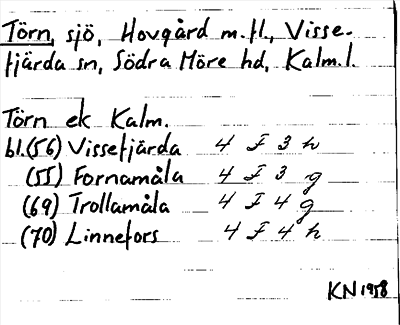 Törn, sjö, Hovgård m.fl., Visse-
fjärda sn, Södra Möre hd, Kalm.l.
Törn ek Kalm.
bl.(56) Vissefjärda 4 F 3 h
(55) Fornamåla 4 F 3 g
(69) Trollamåla 4 F 4 g
(70) Linnefors 4 F 4 h
KN 1958